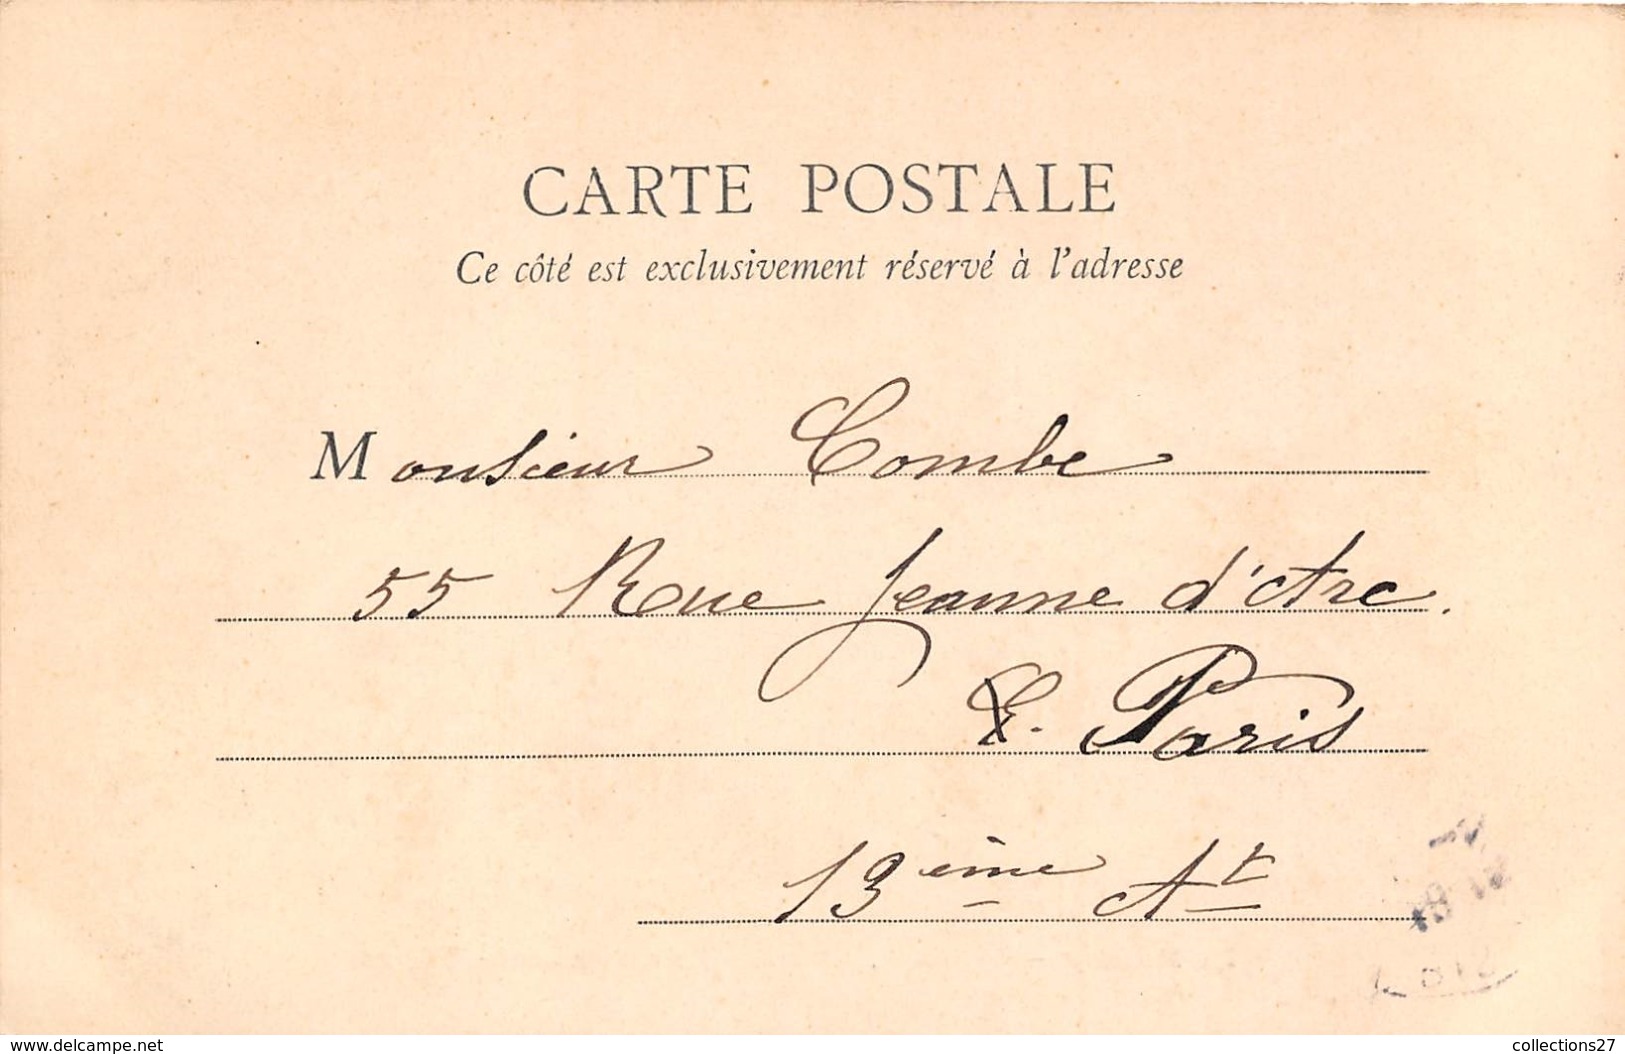 CARTE POSTALE
Ce côté est exclusivement réservé à l'adresse
Monsieur Combe
55 Rue Jeanne d'Arc.
E. Paris
13ème At
www.delcampe.net
collections27